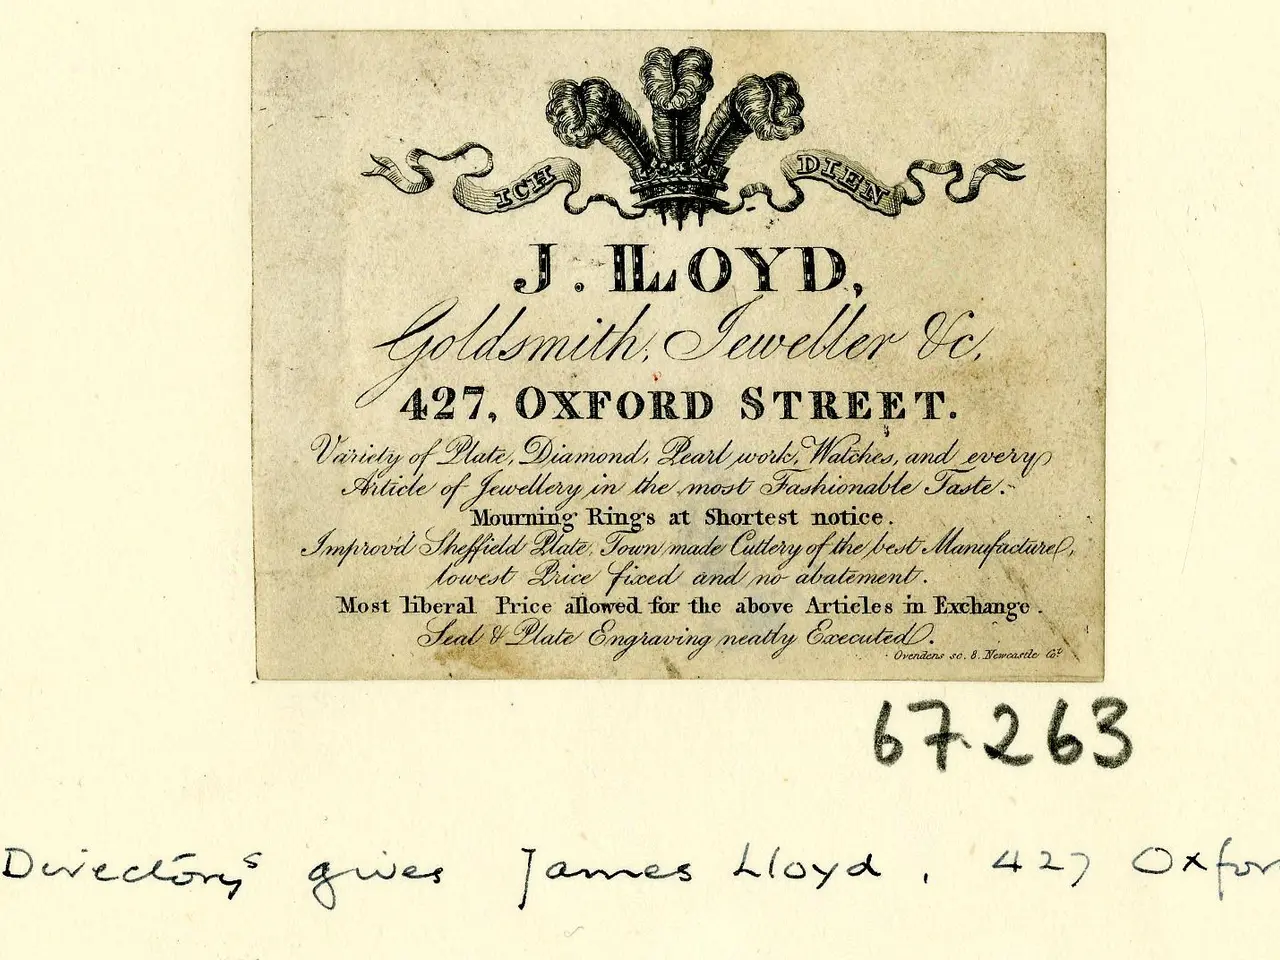 ICH DIEN
J. LLOYD,
Goldsmith, Jeweller &c,
427, OXFORD STREET.
Variety of Plate, Diamond, Pearl work, Watches, and every
Article of Jewellery in the most Fashionable Taste.
Mourning Rings at Shortest notice.
Improv'd Sheffield Plate, Town made Cutlery of the best Manufacture,
lowest Price fixed and no abatement.
Most liberal Price allowed for the above Articles in Exchange.
Seal & Plate Engraving neatly Executed.
Ovendens sc. 8. Newcastle Ct.
67.263
Directorys gives James Lloyd, 427 Oxfor